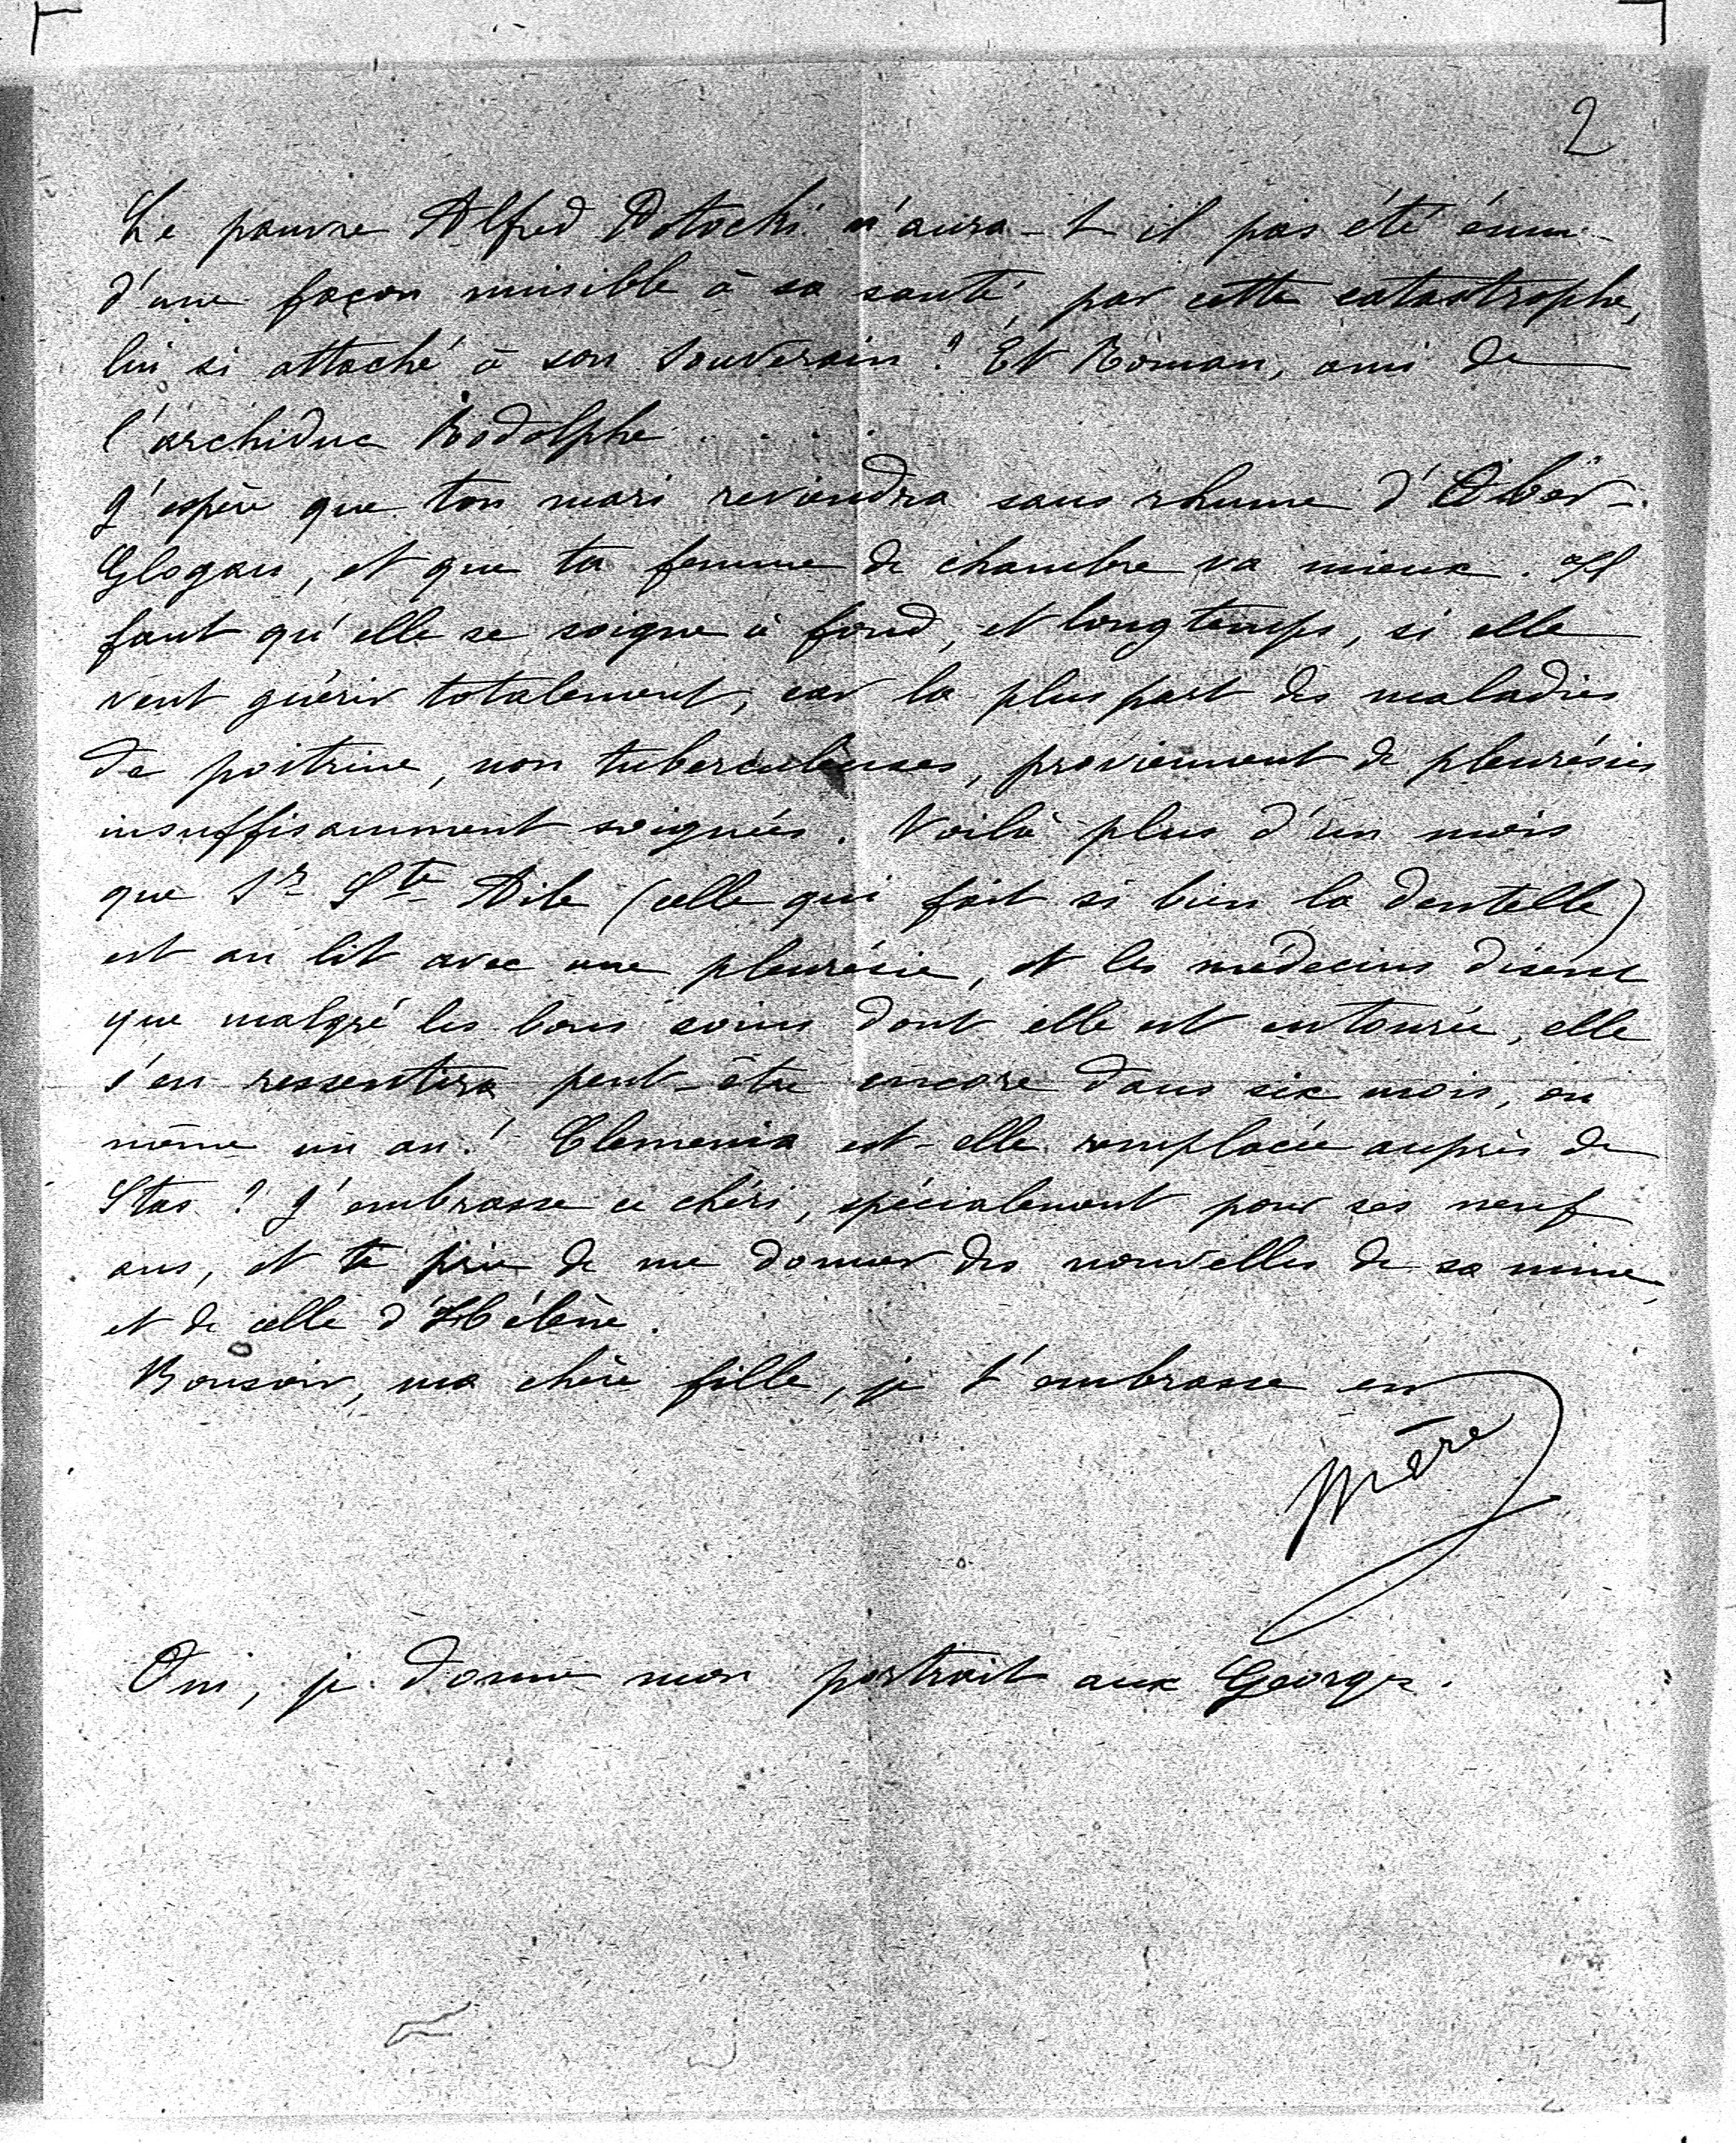 2
Le pauvre Alfred Potocki n'aura-t-il pas été ému
d'une façon nuisible à sa santé, par cette catastrophe,
lui si attaché à son souverain ? Et Roman, ami de
l'archiduc Rodolphe . . . . .
J'espère que ton mari reviendra sans rhume d'Ober-
Glogau, et que ta femme de chambre va mieux. Il
faut qu'elle se soigne à fond, et longtemps, si elle
veut guérir totalement, car la plus part des maladies
de poitrine, non tuberculeuses, proviennent de pleurésies
insuffisamment soignées. Voilà plus d'un mois
que Sr Ste (celle qui fait si bien la dentelle)
est au lit avec une pleurésie, et les médecins disent
que malgré les bons soins dont elle est entourée, elle
s'en ressentira peut-être encore dans six mois, ou
même un an ! est-elle remplacée auprès de
Stas ? J'embrasse ce chéri, spécialement pour ses neuf
ans, et te prie de me donner des nouvelles de sa mine
et de celle d'Hélène.
Bonsoir, ma chère fille, je t'embrasse en
mère
Oui, je donne mon portrait aux Georges.